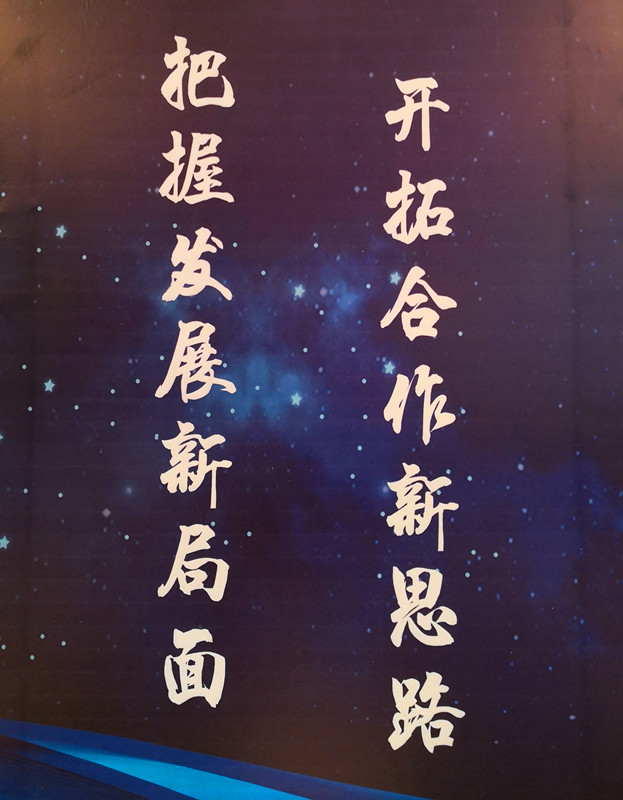 把握发展新局面
开拓合作新思路